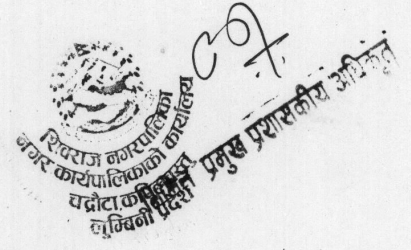 शिवराज नगरपालिका
नगर कार्यपालिकाको कार्यालय
चन्द्रौटा,
लुम्बिनी प्रदेश
प्रमुख प्रशासकीय अधिकृत